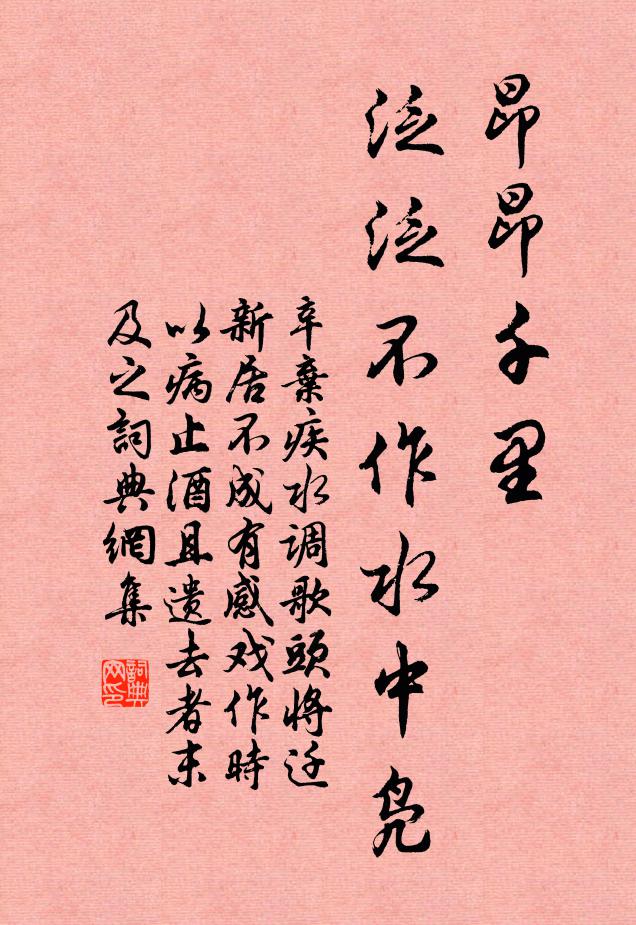 昂昂千里
泛泛不作水中凫
辛棄疾水调歌頭将迁
新居不成有感戏作時
以病止酒且遣去者末
及之詞典網集
詞典
网印